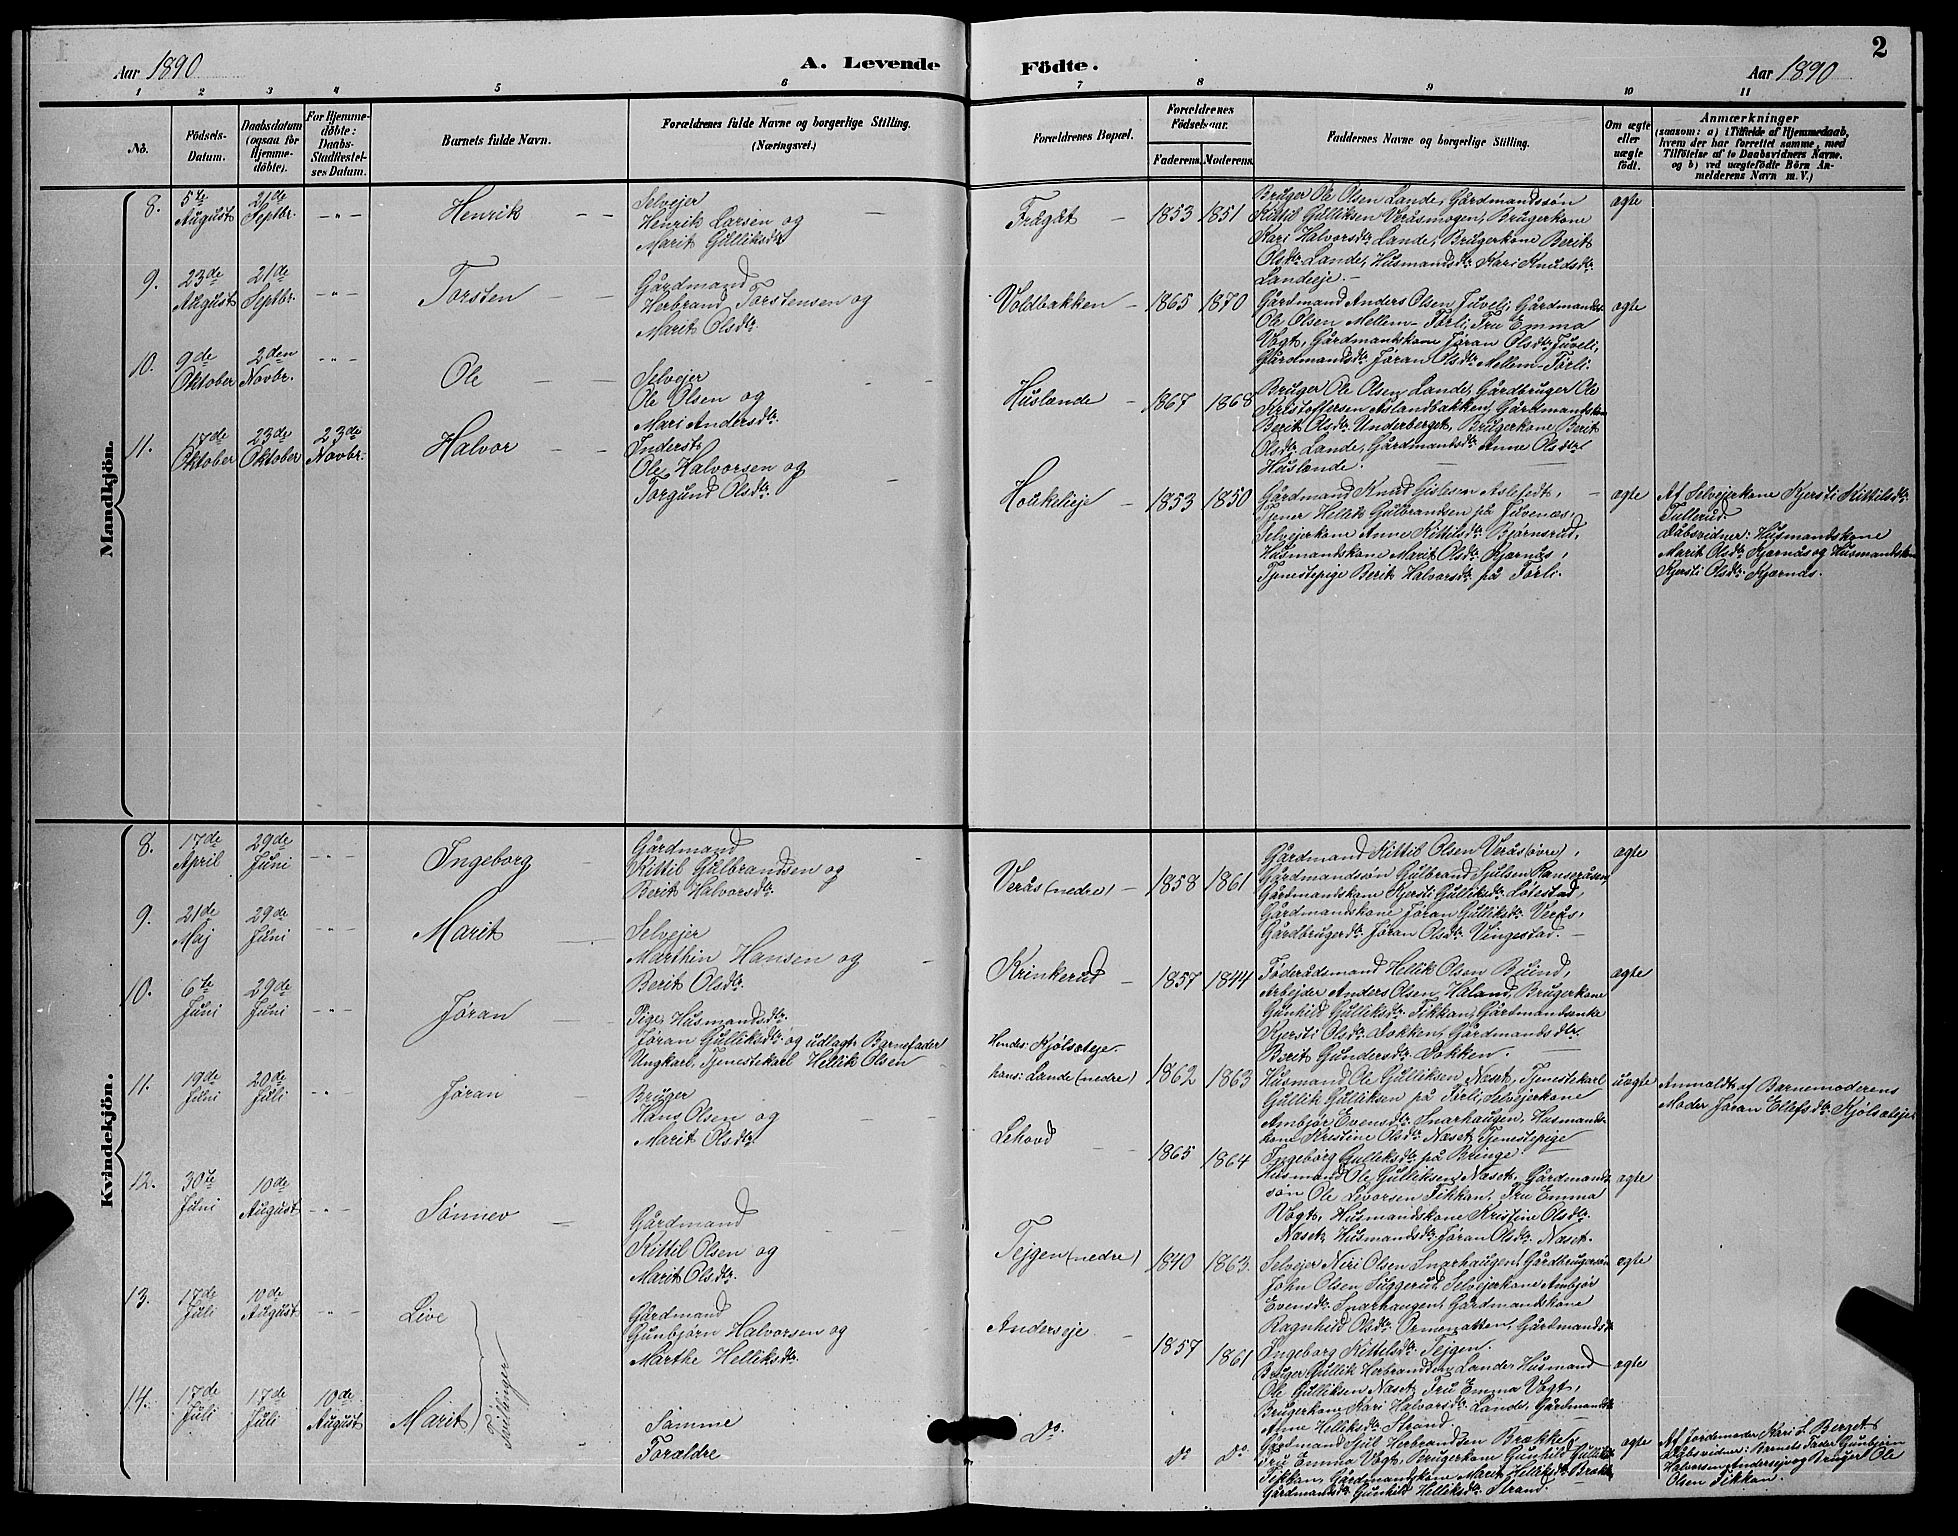 1
2
Aar 1890
A. Levende
Födte.
Aar 1890
1 2 3 4 5 6
7 8 9 10 11
No.
Födsels-
Datum.
Daabsdatum
(ogsaa for
Hjemme-
döbte).
For Hjemme-
döbte:
Daabs-
Stadfæstel-
ses Datum.
Barnets fulde Navn.
Forældrenes fulde Navne og borgerlige Stilling.
(Næringsvei.)
Forældrenes Bopæl.
Forældrenes
Födselsaar.
Faderens. Moderens.
Faddernes Navne og borgerlige Stilling.
Om ægte
eller
uægte
født.
Anmærkninger
(saasom: a) i Tilfælde af Hjemmedaab,
hvem der har forrettet samme, med
Tilföielse af to Daabsvidners Navne,
og b) ved uægtefödte Börn An-
melderens Navn m. V.)
Mandkjön.
8.
5te
August
21de
Septbr.
- " -
Henrik
Selvejer
Henrik Larsen og
Marit Gulliksdtr
Frågåt
1853 1851
Bruger Ole Olsen Lande, Gårdmandssøn
Kittil Gulliksen Veråsmogen, Brugerkone
Kari Halvorsdtr Lande, Brugerkone Berit
Olsdtr Lande, Husmandsdtr Kari Knudsdtr
Landeeje.
ægte
9.
23de
August
21de
Septbr.
- " -
Torsten
Gårdmand
Herbrand Torstensen og
Marit Olsdtr.
Voldbakken
1865 1870
Gårdmand Anders Olsen Juveli, Gårdmands.
Ole Olsen Mellem-Förli, Fru Emma
Vogt, Gårdmandskone Jøran Olsdtr Juveli,
Gårdmandsdtr Jøran Olsdtr Mellem-Förli.
ægte
10.
9de
Oktober
2den
Novbr.
- " -
Ole
Selvejer
Ole Olsen og
Mari Andersdtr.
Huslænde
1867 1868
Bruger Ole Olsen Lande, Gårdbruger Ole
Kristoffersen Aslandbakken, Gårdmandskone
Berit Olsdtr Underberget, Brugerkone Berit
Olsdtr Lande, Gårdmandsdtr Anne Olsdtr
Huslænde.
11.
17de
Oktober
23de
Oktober
23de
Novbr.
Halvor
Inderst
Ole Halvorsen og
Torgund Olsdtr.
Houkelieje
1853 1850
Gårdmand Knud Gislesen Aslefedt,
Tjener Hellik Gulbrandsen på Juvenæs,
Selvejerkone Anne Kittilsdtr Bjørnsrud,
Husmandskone Marit Olsdtr Kjærnås,
Tjenestepige Berit Halvorsdtr på Förli.
ægte
Af Selvejerkone Kjersti Kittilsdtr
Tullerud.
Dåbsvidner: Husmandskone
Marit Olsdtr Kjærnås og Husmandskone
Kjersti Olsdtr Kjærnås.
Kvindekjön.
8.
17de
April
29de
Juni
- " -
Ingeborg
Gårdmand
Kittil Gulbrandsen og
Berit Halvorsdtr
Verås (nedre)
1858 1861
Gårdmand Kittil Olsen Verås (övre),
Gårdmandssøn Gulbrand Sjulsen Ranseråsen,
Gårdmandskone Kjersti Gulliksdtr Løtestad,
Gårdmandskone Jøran Gulliksdtr Verås,
Gårdbrugerdtr Jøran Olsdtr Vingestad.
ægte
9.
21de
Maj
29de
Juni
- " -
Marit
Selvejer
Marthin Hansen og
Berit Olsdtr.
Krinkerud
1857 1844
Føderådsmand Hellik Olsen Buind,
Arbejder Anders Olsen Håland, Brugerkone
Gunhild Gulliksdtr Fikkan, Gårdmandsenke
Kjersti Olsdtr Dokken, Gårdmandsdtr
Berit Gundersdtr Dokken.
ægte
10.
6te
Juni
29de
Juni
- " -
Jøran
Pige, Husmandsdtr.
Jøran Gulliksdtr og udlagt Barnefader
Ungkarl, Tjenestekarl Hellik Olsen
Hendes: Kjølsæteje.
hans: Lande (nedre)
1862 1863
Husmand Ole Gulliksen Næset, Tjenestekarl
Gullik Gulliksen på Förli, Selvejerkone
Ambjør Evensdtr Snarhaugen, Husmands-
kone Kristine Olsdtr Næset, Tjenestepige
Ingeborg Gulliksdtr på Bringe.
uægte
Anmeldt af Barnemoderens
Moder Jøran Ellefsdtr Kjølsæteje
11.
19de
Juni
20de
Juli
- " -
Jøran
Bruger
Hans Olsen og
Marit Olsdtr
Lehovd
1865 1864
Husmand Ole Gulliksen Næset, Gårdmands-
søn Ole Levorsen Fikkan, Fru Emma
Vogt, Husmandskone Kristine Olsdtr
Næset, Husmandsdtr Jøran Olsdtr Næset.
ægte
12.
30te
Juni
10de
August
- " -
Sønnev
Gårdmand
Kittil Olsen og
Marit Olsdtr.
Tejgen (nedre)
1840 1863.
Selvejer Niri Olsen Snarhaugen, Gårdbrugersøn
John Olsen Juggerud, Selvejerkone Ambjør
Evensdtr Snarhaugen, Gårdmandskone
Ragnhild Olsdtr Ormenatten, Gårdmandsdtr
Ingeborg Kittelsdtr Tejgen.
ægte
13.
17de
Juli
10de
August
- " -
Live
Tvillinger
Gårdmand
Gunbjørn Halvorsen og
Marthe Helliksdtr.
Anderseje
1857 1861
Bruger Gullik Herbrandsen Lande, Husmand
Ole Gulliksen Næset, Fru Emma Vogt,
Brugerkone Kari Halvorsdtr Lande, Gårdmandsdtr
Anne Helliksdtr Strand.
ægte
14.
17de
Juli
17de
Juli
10de
August
Marit
Samme
Forældre
Do.
do Do.
Gårdmand Sjul Herbrandsen Brække,
Fru Emma Vogt, Brugerkone Gunhild Gulliksdtr
Fikkan, Gårdmandskone Marit Helliksdtr Brække,
Gårdmandsdtr Gunhild Helliksdtr Strand.
ægte
Af Jordemoder Kari L. Berget.
Dåbsvidner: Barnets Fader Gunbjørn
Halvorsen Anderseje og Bruger Ole
Olsen Fikkan.